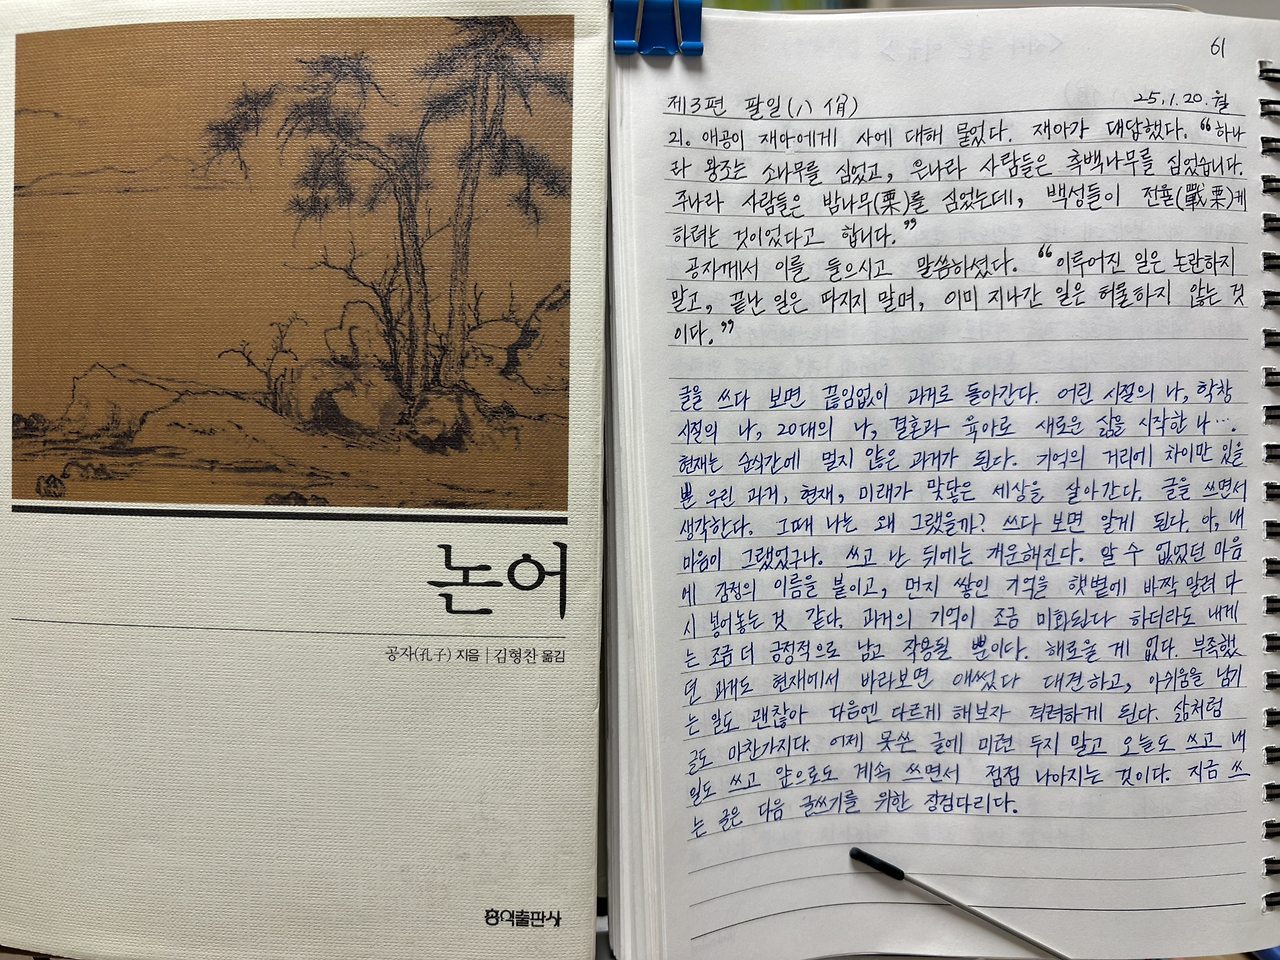 논어
공자(孔子) 지음 | 김형찬 옮김
홍익출판사
61
제3편 팔일(八佾) 25.1.20.월
21. 애공이 재아에게 사에 대해 물었다. 재아가 대답했다. “하나
라 왕조는 소나무를 심었고, 은나라 사람들은 측백나무를 심었습니다.
주나라 사람들은 밤나무(栗)를 심었는데, 백성들이 전율(戰栗)케
하려는 것이었다고 합니다.”
공자께서 이를 들으시고 말씀하셨다. “이루어진 일은 논란하지
말고, 끝난 일은 따지지 말며, 이미 지나간 일은 허물하지 않는 것
이다.”
글을 쓰다 보면 끊임없이 과거로 돌아간다. 어린 시절의 나, 학창
시절의 나, 20대의 나, 결혼과 육아로 새로운 삶을 시작한 나….
현재는 순식간에 멀지 않은 과거가 된다. 기억의 거리에 차이만 있을
뿐 우린 과거, 현재, 미래가 맞닿은 세상을 살아간다. 글을 쓰면서
생각한다. 그때 나는 왜 그랬을까? 쓰다 보면 알게 된다. 아, 내
마음이 그랬었구나. 쓰고 난 뒤에는 개운해진다. 알 수 없었던 마음
에 감정의 이름을 붙이고, 먼지 쌓인 기억을 햇볕에 바짝 말려 다
시 넣어놓는 것 같다. 과거의 기억이 조금 미화된다 하더라도 내게
는 조금 더 긍정적으로 남고 작용될 뿐이다. 해로울 게 없다. 부족했
던 과거도 현재에서 바라보면 애썼다 대견하고, 아쉬움을 남기
는 일도 괜찮아 다음엔 다르게 해보자 격려하게 된다. 삶처럼
글도 마찬가지다. 어제 못쓴 글에 미련 두지 말고 오늘도 쓰고 내
일도 쓰고 앞으로도 계속 쓰면서 점점 나아지는 것이다. 지금 쓰
는 글은 다음 글쓰기를 위한 징검다리다.